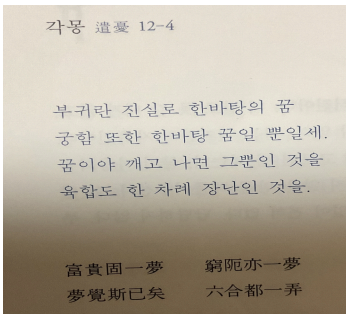 각몽 遣憂 12-4
부귀란 진실로 한바탕의 꿈
궁함 또한 한바탕 꿈일 뿐일세.
꿈이야 깨고 나면 그뿐인 것을
육합도 한 차례 장난인 것을.
富貴固一夢 窮阨亦一夢
夢覺斯已矣 六合都一弄